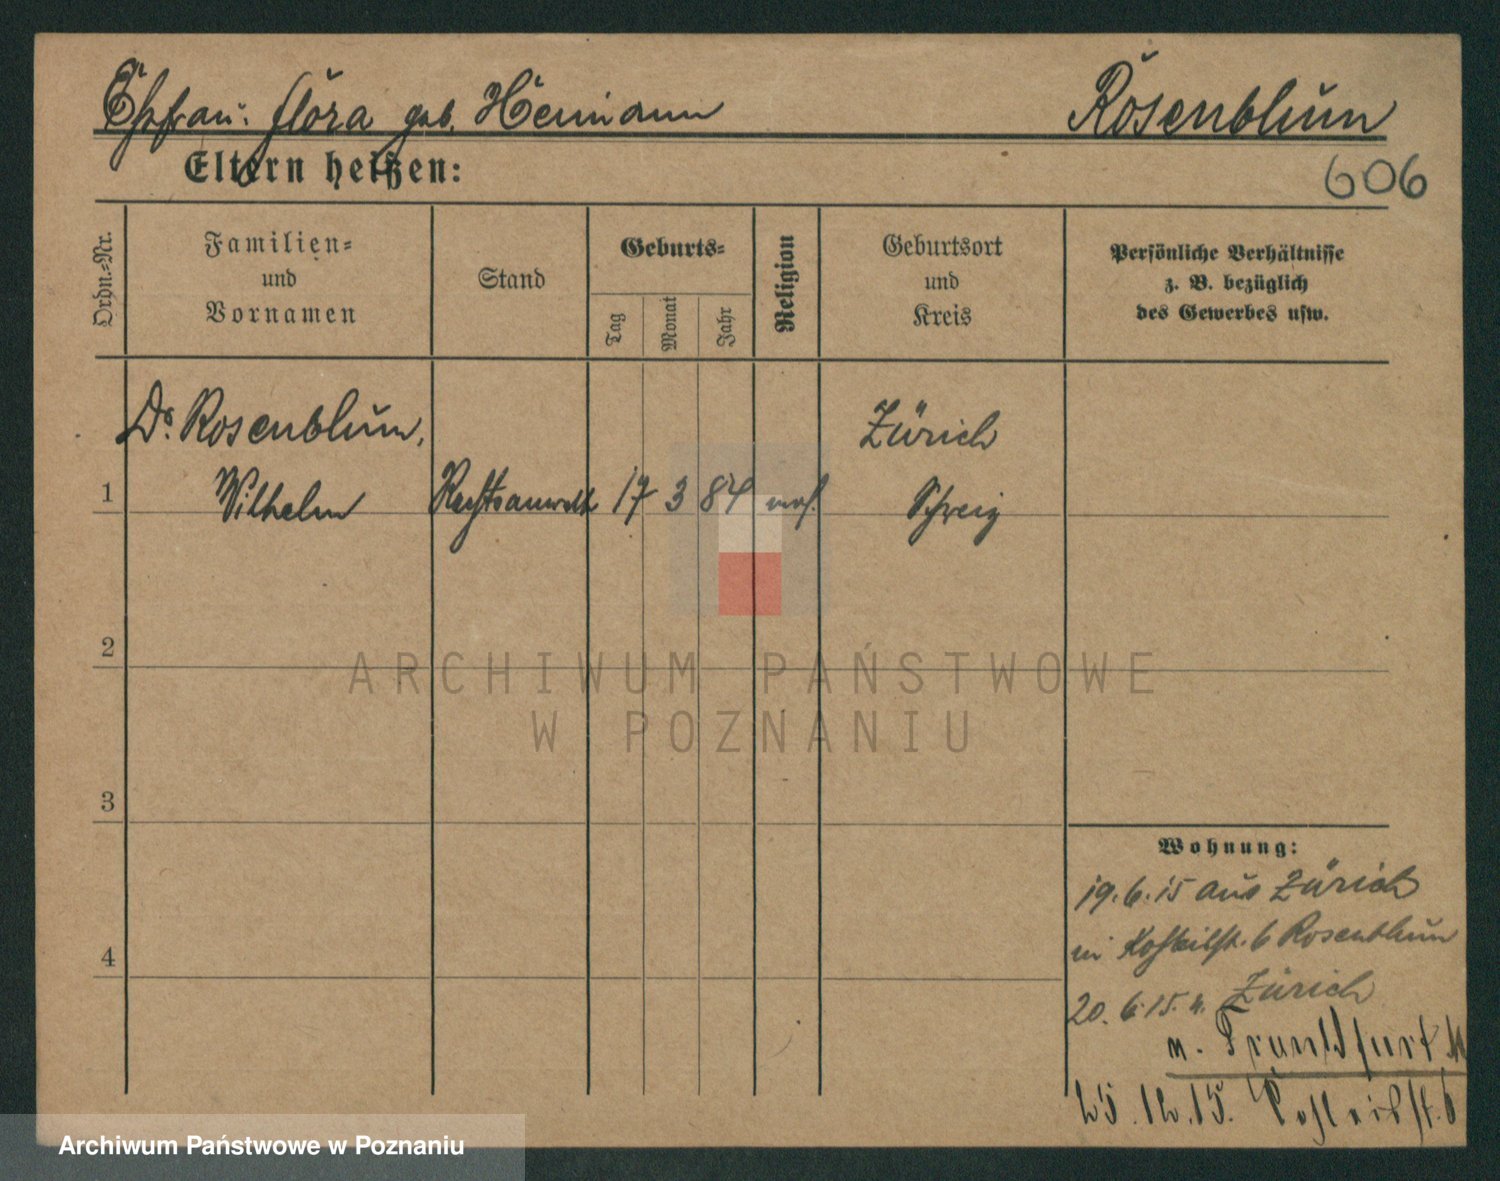 Ehefrau: Flora geb. Heimann
Rosenblum
Eltern heißen:
606
Ordn.-Nr.
Familien-
und
Vornamen
Stand
Geburts-
Tag
Monat
Jahr
Religion
Geburtsort
und
Kreis
Persönliche Verhältnisse
z. B. bezüglich
des Gewerbes usw.
Dr. Rosenblum,
Zürich
1 Wilhelm Rechtsanwalt 17 3 84 mos. Schweiz
2
ARCHIWUM PAŃSTWOWE
W POZNANIU
3
Wohnung:
19.6.15 aus Zürich
in 6 Rosenblum
4
20.6.15. n. Zürich
n. Frankfurt M
25.12.15. 6
Archiwum Państwowe w Poznaniu